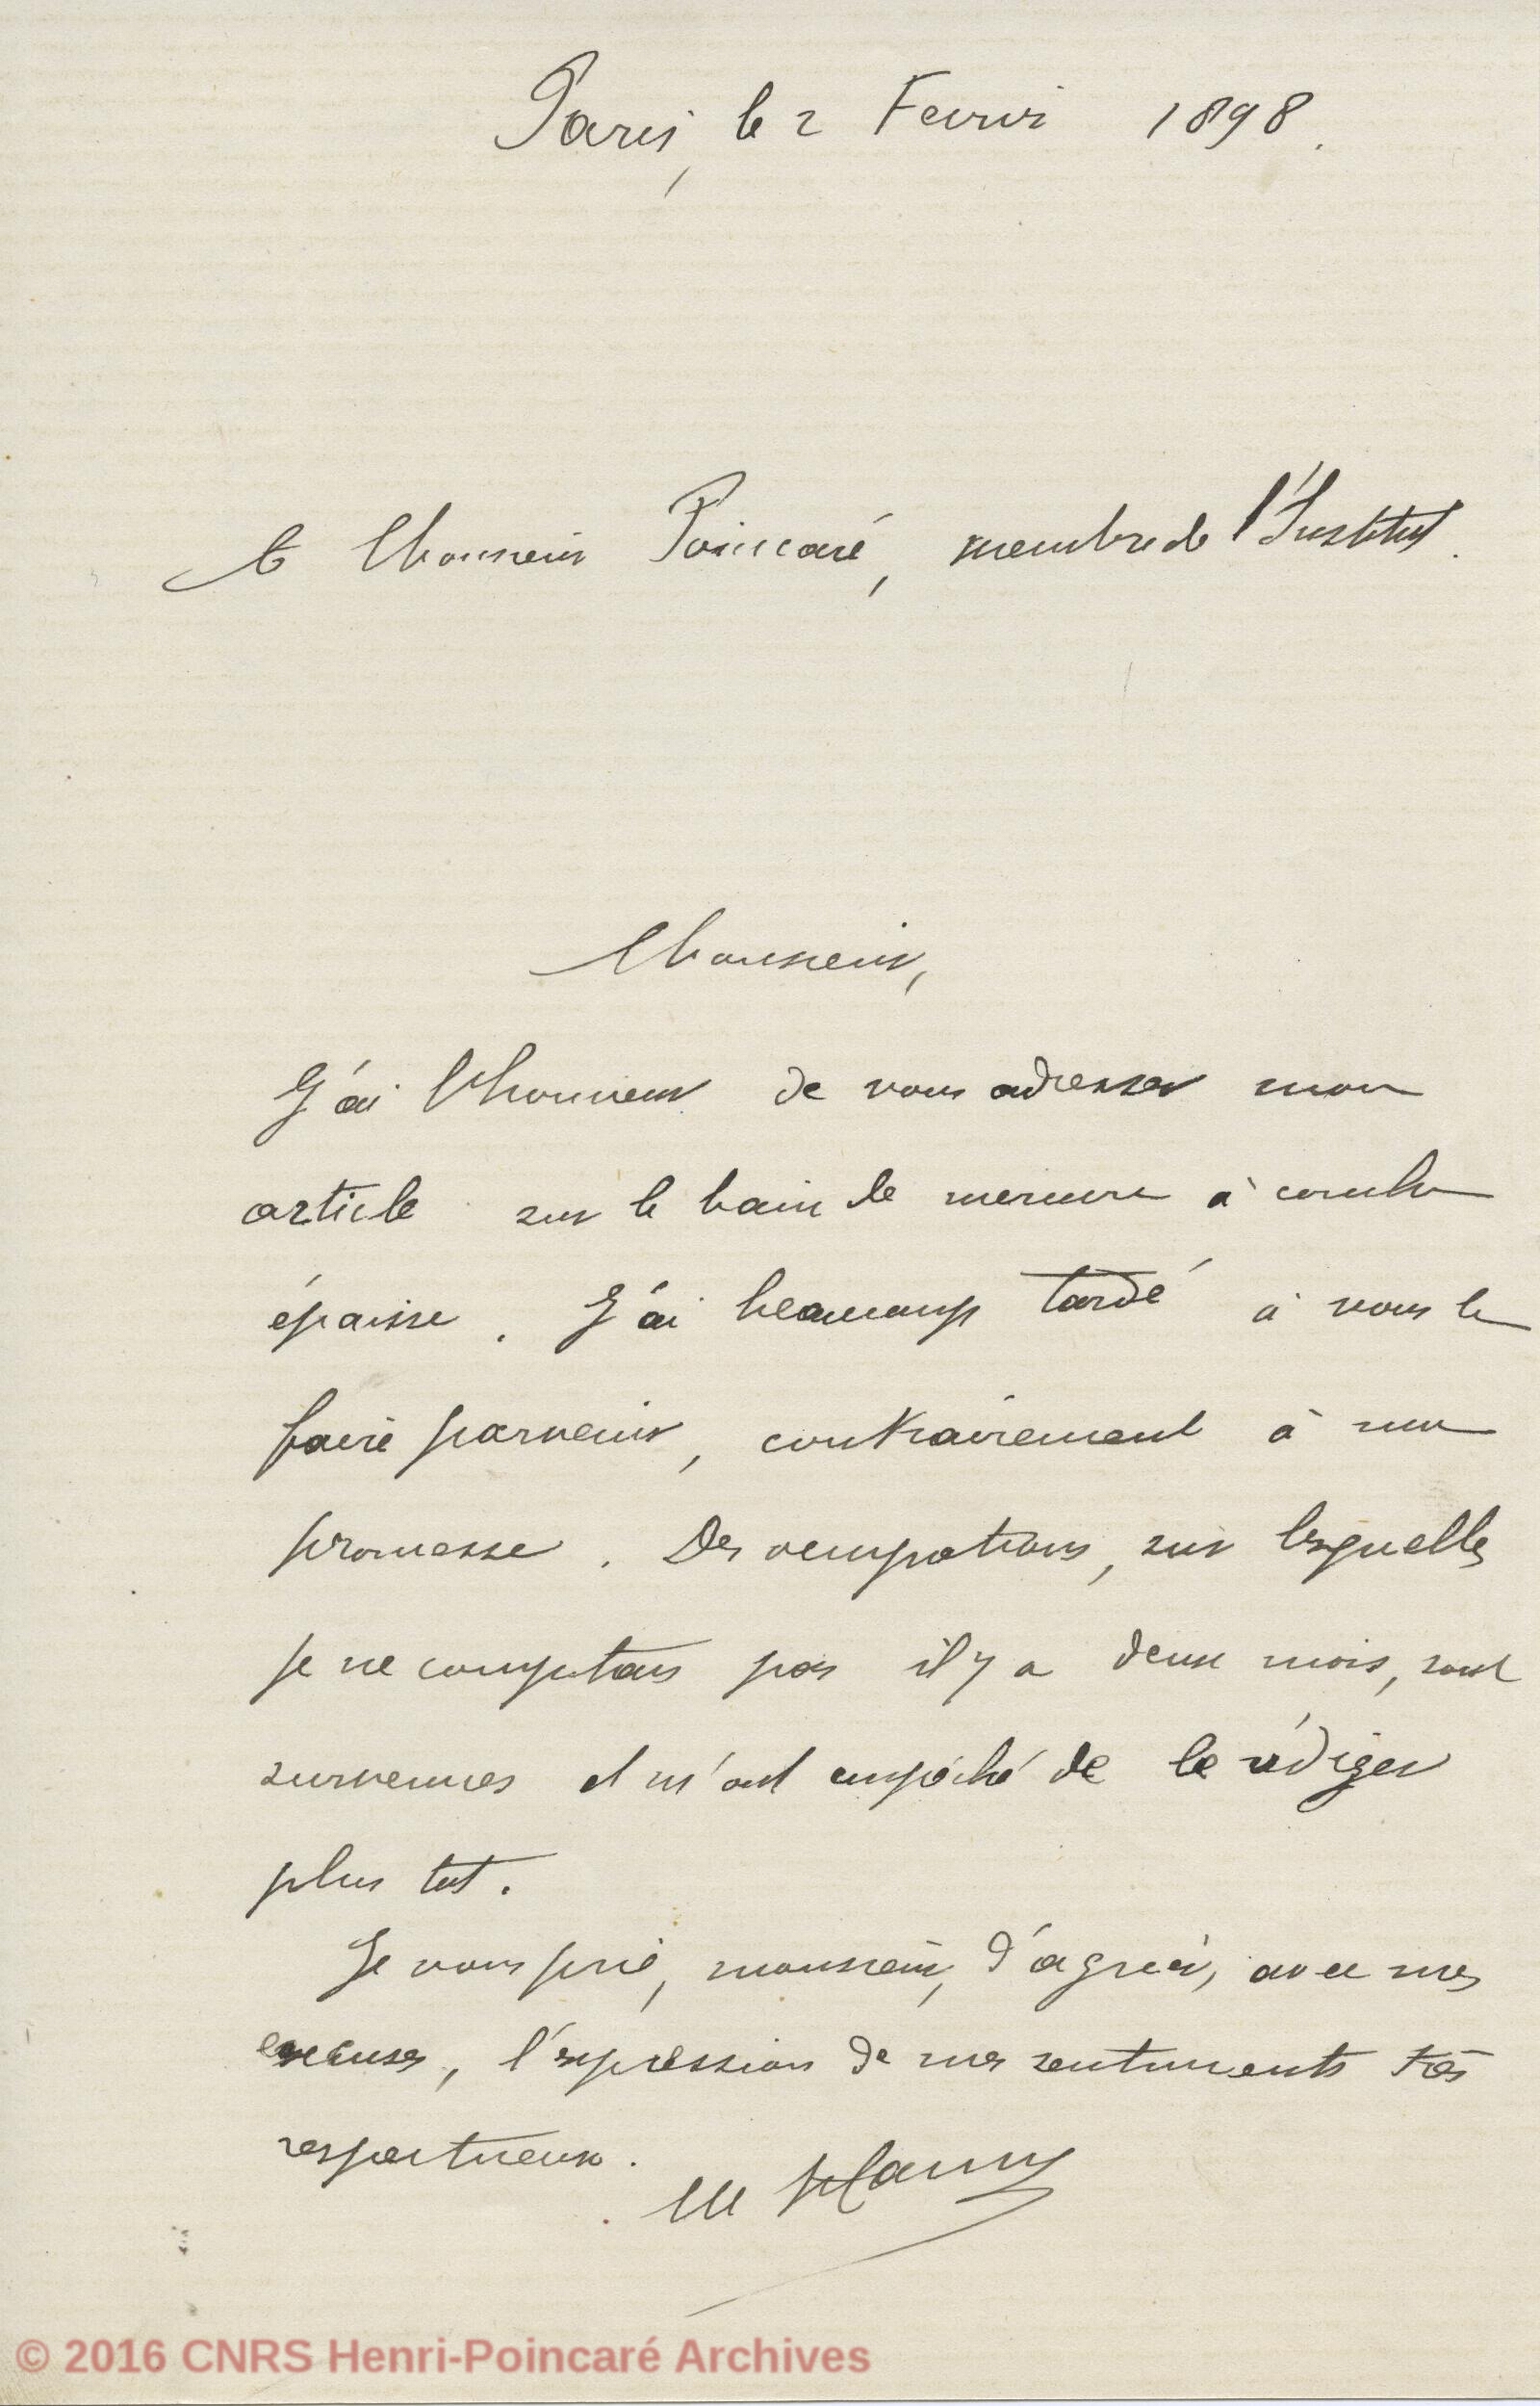 Paris, le 2 Fevrier 1898.
A Monsieur Poincaré, membre de l'Institut.
Monsieur,
J'ai l'honneur de vous adresser mon
article sur le bain de mercure à couche
épaisse. J'ai beaucoup tardé à vous le
faire parvenir, contrairement à ma
promesse. Des occupations, sur lesquelles
je ne comptais pas il y a deux mois, sont
survenues et m'ont empêché de le rédiger
plus tot.
Je vous prie, monsieur, d'agréer, avec mes
excuses, l'expression de mes sentiments très
respectueux.
M Hamy
© 2016 CNRS Henri-Poincaré Archives